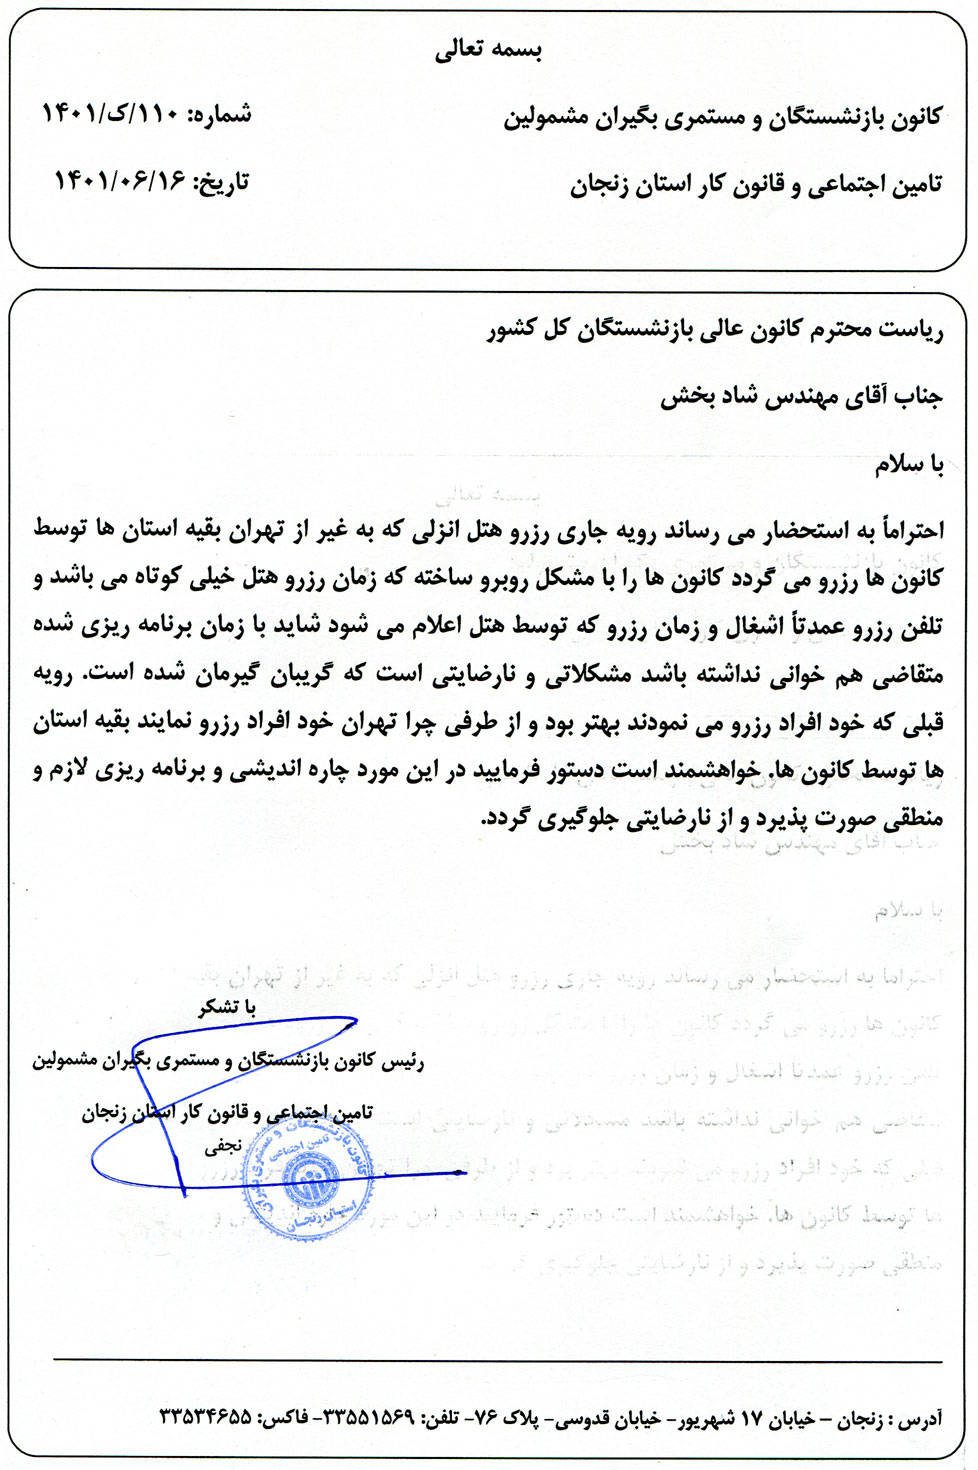 بسمه تعالی
کانون بازنشستگان و مستمری بگیران مشمولین
شماره: ۱۱۰/ک/۱۴۰۱
تامین اجتماعی و قانون کار استان زنجان
تاریخ: ۱۴۰۱/۰۶/۱۶
ریاست محترم کانون عالی بازنشستگان کل کشور
جناب آقای مهندس شاد بخش
با سلام
احتراماً به استحضار می رساند رویه جاری رزرو هتل انزلی که به غیر از تهران بقیه استان ها توسط
کانون ها رزرو می گردد کانون ها را با مشکل روبرو ساخته که زمان رزرو هتل خیلی کوتاه می باشد و
تلفن رزرو عمدتاً اشغال و زمان رزرو که توسط هتل اعلام می شود شاید با زمان برنامه ریزی شده
متقاضی هم خوانی نداشته باشد مشکلاتی و نارضایتی است که گریبان گیرمان شده است. رویه
قبلی که خود افراد رزرو می نمودند بهتر بود و از طرفی چرا تهران خود افراد رزرو نمایند بقیه استان
ها توسط کانون ها. خواهشمند است دستور فرمایید در این مورد چاره اندیشی و برنامه ریزی لازم و
منطقی صورت پذیرد و از نارضایتی جلوگیری گردد.
با تشکر
رئیس کانون بازنشستگان و مستمری بگیران مشمولین
تامین اجتماعی و قانون کار استان زنجان
نجفی
کانون بازنشستگان و مستمری بگیران
تامین اجتماعی
استان زنجان
آدرس : زنجان – خیابان ۱۷ شهریور- خیابان قدوسی- پلاک ۷۶- تلفن: ۳۳۵۵۱۵۶۹- فاکس: ۳۳۵۳۴۶۵۵